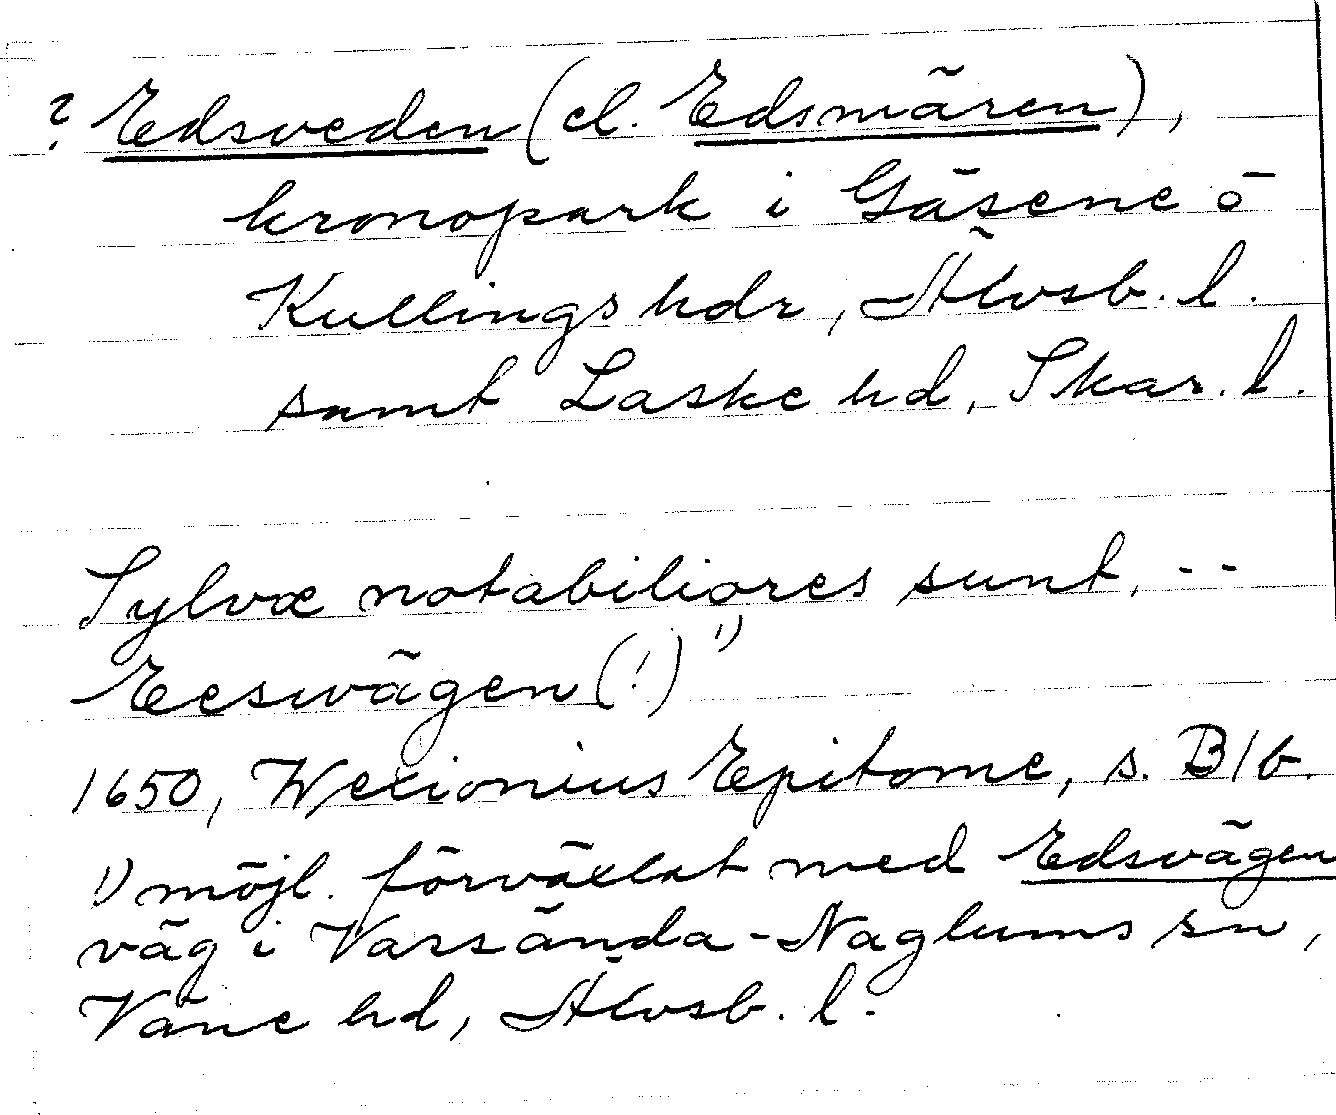 ? Edsveden (el. Edsmären),
kronopark i Gäsene o
Kullings hdr, Älvsb. l.
samt Laske hd, Skar. l.
Sylvæ notabiliores sunt, --
Eeswägen(!) 1)
1650, Wexionius Epitome, s. B1b.
1) möjl. förväxlat med Edsvägen
väg i Vassända-Naglums sn,
Väne hd, Älvsb. l.